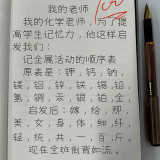 我的老师
我的化学老师，为了提
高学生记忆力，他这样启
发我们：
记金属活动的顺序表
原表是：钾，钙，钠，
镁，铝，锌，铁，锡，铅，
氢，铜，汞，银，铂，金，
启发后：嫁，给，那，
美，女，身，体，细，纤
轻，统，共，一，百，斤，
现在全班倒背如流。
100